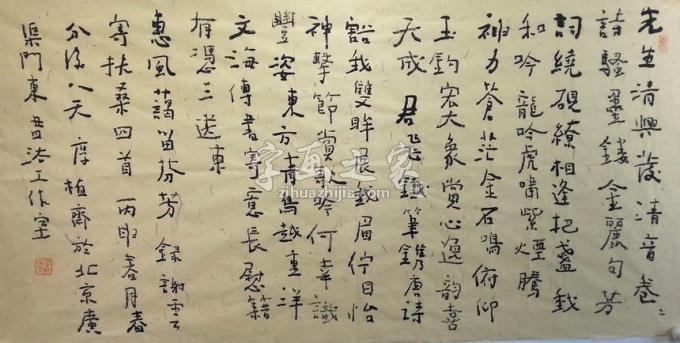 先生清興發清音卷〻
詩騷墨鏤金麗句芳
詞繞硯繚相逢把盞我
和吟龍吟虎嘯紫煙騰
神力蒼茫金石鳴俯仰
玉鈎宏大象賞心逸韵喜
天成 君飞鐵筆鐫唐詩
豁我雙眸展我眉佇目怡
神擊節賞歌吟何幸識
豐姿東方青鳥越重洋
文海傳書寄意長慰藉
有憑三送東
惠風藹留芬芳 録謝
寄扶桑四首 丙申春月春
分後八天 厚植齋於北京廣
渠門東書法工作室
字画之家
zihuazhijia.com